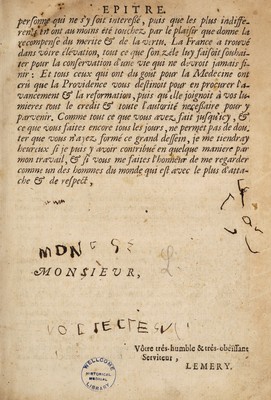 EPITRE.
personne qui ne s'y soit interessé, puis que les plus indiffe-
rens en ont au moins été touchez par le plaisir que donne la
recompense du merite & de la vertu. La France a trouvé
dans vôtre élevation, tout ce que son zele luy faisoit souhai-
ter pour la conservation d'une vie qui ne devroit jamais fi-
nir: Et tous ceux qui ont du goût pour la Medecine ont
crû que la Providence vous destinoit pour en procurer l'a-
vancement & la reformation, puis qu'elle joignoit à vos lu-
mieres tout le credit & toute l'autorité necessaire pour y
parvenir. Comme tout ce que vous avez fait jusqu'icy, &
ce que vous faites encore tous les jours, ne permet pas de dou-
ter que vous n'ayez formé ce grand dessein, je me tiendray
heureux si je puis y avoir contribué en quelque maniere par
mon travail, & si vous me faites l'honneur de me regarder
comme un des hommes du monde qui est avec le plus d'atta-
che & de respect,
MONSIEUR,
Vôtre trés-humble & trés-obéissant
Serviteur,
LEMERY.
WELLCOME
HISTORICAL
MEDICAL
LIBRARY